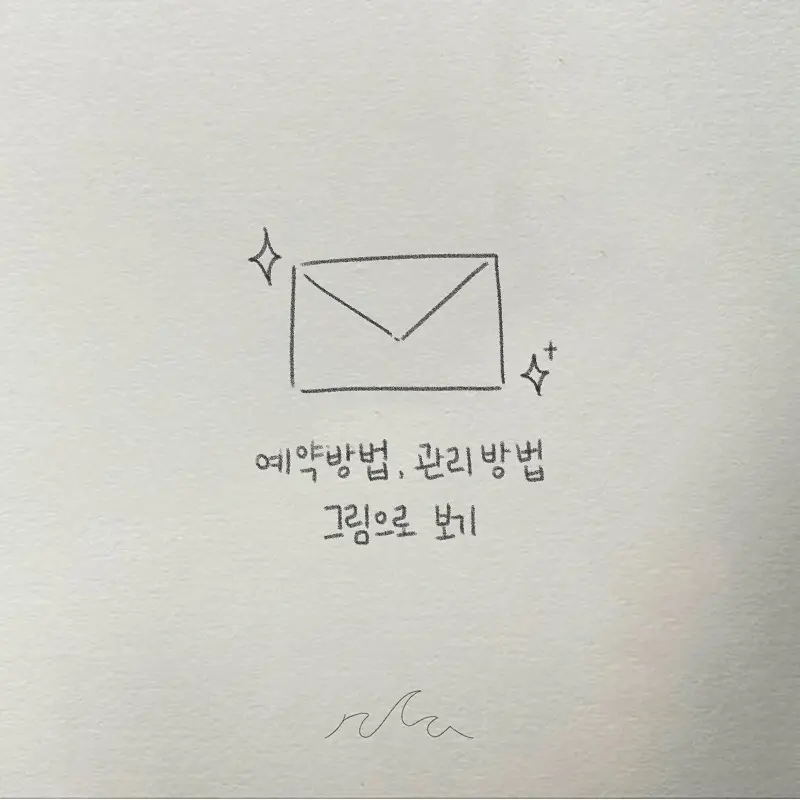 예약방법, 관리방법
그림으로 보기